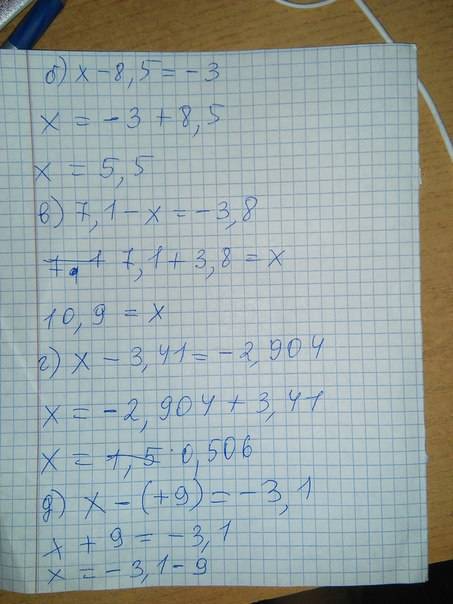 б) x - 8,5 = -3
x = -3 + 8,5
x = 5,5
в) 7,1 - x = -3,8
7,1 + 3,8 = x
10,9 = x
г) x - 3,41 = -2,904
x = -2,904 + 3,41
x = 1,5 0,506
д) x - (+9) = -3,1
x + 9 = -3,1
x = -3,1 - 9